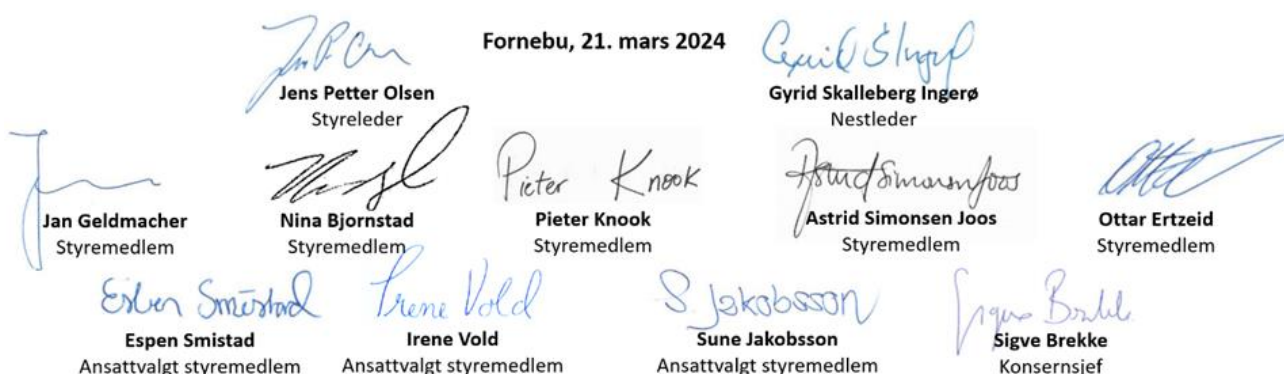 Fornebu, 21. mars 2024
Jens Petter Olsen
Styreleder
Gyrid Skalleberg Ingerø
Nestleder
Jan Geldmacher
Styremedlem
Nina Bjornstad
Styremedlem
Pieter Knook
Pieter Knook
Styremedlem
Astrid Simonsen Joos
Astrid Simonsen Joos
Styremedlem
Ottar Ertzeid
Styremedlem
Esben Smistad
Espen Smistad
Ansattvalgt styremedlem
Irene Vold
Irene Vold
Ansattvalgt styremedlem
S. Jakobsson
Sune Jakobsson
Ansattvalgt styremedlem
Sigve Brekke
Konsernsjef